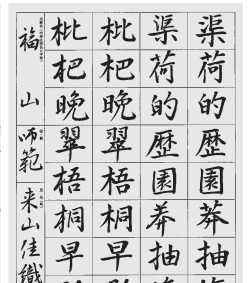 渠荷的歴園莽抽
渠荷的歴園莽抽
枇杷晚翠梧桐早
枇杷晚翠梧桐早
福山師範来山佳織